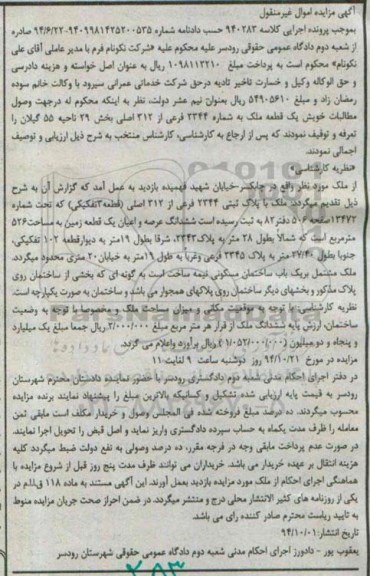 آگهی مزایده اموال غیرمنقول
بموجب پرونده اجرایی کلاسه ۹۴۰۲۸۳ حسب دادنامه شماره ۹۴۰۹۹۸۱۴۲۵۲۰۰۵۳۵-۹۴/۶/۲۲ صادره
از شعبه دوم دادگاه عمومی حقوقی رودسر علیه محکوم علیه «شرکت نکونام فرم با مدیر عاملی آقای علی
نکونام» محکوم است به پرداخت مبلغ ۱۰۹۸۱۱۳۲۱۰ ریال به عنوان اصل خواسته و هزینه دادرسی
و حق الوکاله وکیل و خسارت تاخیر تادیه درحق شرکت خدماتی عمرانی سپیرود با وکالت خانم سوده
رمضان زاد و مبلغ ۵۴۹۰۵۶۱۰ ریال بعنوان نیم عشر دولت، نظر به اینکه محکوم له درجهت وصول
مطالبات خویش یک قطعه ملک به شماره ۲۳۴۴ فرعی از ۳۱۲ اصلی بخش ۲۹ ناحیه ۵۵ گیلان را
تعرفه و توقیف نمودند که پس از ارجاع به کارشناسی، کارشناس منتخب به شرح ذیل ارزیابی و توصیف
اجمالی نمودند.
«نظریه کارشناسی»
از ملک مورد نظر واقع در چابکسر-خیابان شهید فهمیده بازدید به عمل آمد که گزارش آن به شرح
ذیل تقدیم میگردد. ملک با پلاک ثبتی ۲۳۴۴ فرعی از ۳۱۲ اصلی (قطعه۳تفکیکی) که تحت شماره
۱۳۴۷۲صفحه ۵۰۶ دفتر۸۲ به ثبت رسیده است ششدانگ عرصه و اعیان یک قطعه زمین به مساحت۵۲۶
مترمربع است که شمالاً بطول ۲۸ متر به پلاک۲۳۴۲، شرقا بطول ۱۹متر به دیوارقطعه ۱۰۲ تفکیکی،
جنوبا بطول ۲۷/۴۰ متر به پلاک ۲۳۴۵ فرعی وغربا به طول ۱۹متر به خیابان۲۰ متری محدود میگردد.
ملک مشتمل بریک باب ساختمان مسکونی نیمه ساخت است به گونه ای که بخشی از ساختمان روی
پلاک مذکور و بخشهای دیگر ساختمان روی پلاکهای همجوار می باشد و ساختمان به صورت یکپارچه است.
نظریه کارشناسی: با توجه به موقعیت مکانی و میزان مساحت ملک و مخصوصا با توجه به وضعیت
ساختمان، ارزش پایه ششدانگ ملک از قرار هر متر مربع مبلغ ۲/۰۰۰/۰۰۰ ریال جمعا مبلغ یک میلیارد
و پنجاه و دو میلیون (۱/۰۵۲/۰۰۰/۰۰۰) ریال برآورد واعلام می گردد.
مزایده در مورخ ۹۴/۱۰/۲۱ روز دوشنبه ساعت ۹ لغایت۱۱
در دفتر اجرای احکام مدنی شعبه دوم دادگستری رودسر با حضور نماینده دادستان محترم شهرستان
رودسر به قیمت پایه ارزیابی شده تشکیل و کسانیکه بالاترین مبلغ را پیشنهاد نمایند برنده مزایده
محسوب میگردند. ده درصد مبلغ فروخته شده فی المجلس وصول و خریدار مکلف است مابقی ثمن
معامله را ظرف مدت یکماه به حساب سپرده دادگستری واریز نماید و اصل قبض را تحویل اجرا نمایند.
در صورت عدم پرداخت مابقی وجه در فرجه مقرر، ده درصد وصولی به نفع دولت ضبط میگردد کلیه
هزینه انتقال بر عهده خریدار می باشد. خریداران می توانند ظرف مدت پنج روز قبل از شروع مزایده با
هماهنگی اجرای احکام از ملک مورد مزایده بازدید بعمل آورند. این آگهی مستند به ماده ۱۱۸ ق.ا.م در
یکی از روزنامه های کثیر الانتشار محلی درج و منتشر میگردد. در ضمن احراز صحت جریان مزایده منوط
به تایید ریاست محترم صادر کننده رای می باشد.
تاریخ انتشار: ۹۴/۱۰/۰۱
یعقوب پور - دادورز اجرای احکام مدنی شعبه دوم دادگاه عمومی حقوقی شهرستان رودسر
۲۸۳